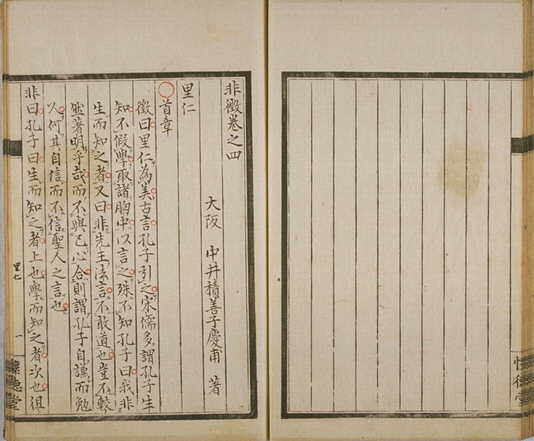 非徴卷之四
大阪 中井積善子慶甫 著
里仁
首章
徴曰里仁為美古言孔子引之宋儒多謂孔子生
知不假學取諸胸中以言之殊不知孔子曰我非
生而知之者又曰非先王法言不敢道也豈不較
然著明乎哉而不與己心合則謂孔子自謙而勉
人何其自信而不信聖人之言也
非曰孔子曰生而知之者上也學而知之者次也徂
里仁
一
懷德堂
懷德堂